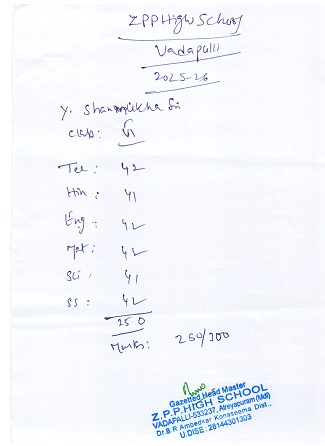 ZPP High School
Vadapalli
2025-26
Y. Shanmukha Sri
Class: VI
Tel: 42
Hin: 41
Eng: 42
Mat: 42
Sci: 41
SS: 42
250
Marks: 250/300
Gazetted Head Master
Z.P.P.HIGH SCHOOL
VADAPALLI-533237, Atreyapuram (Mdl)
Dr.B.R Ambedkar Konaseema Dist.,
U.DISE: 28144301303